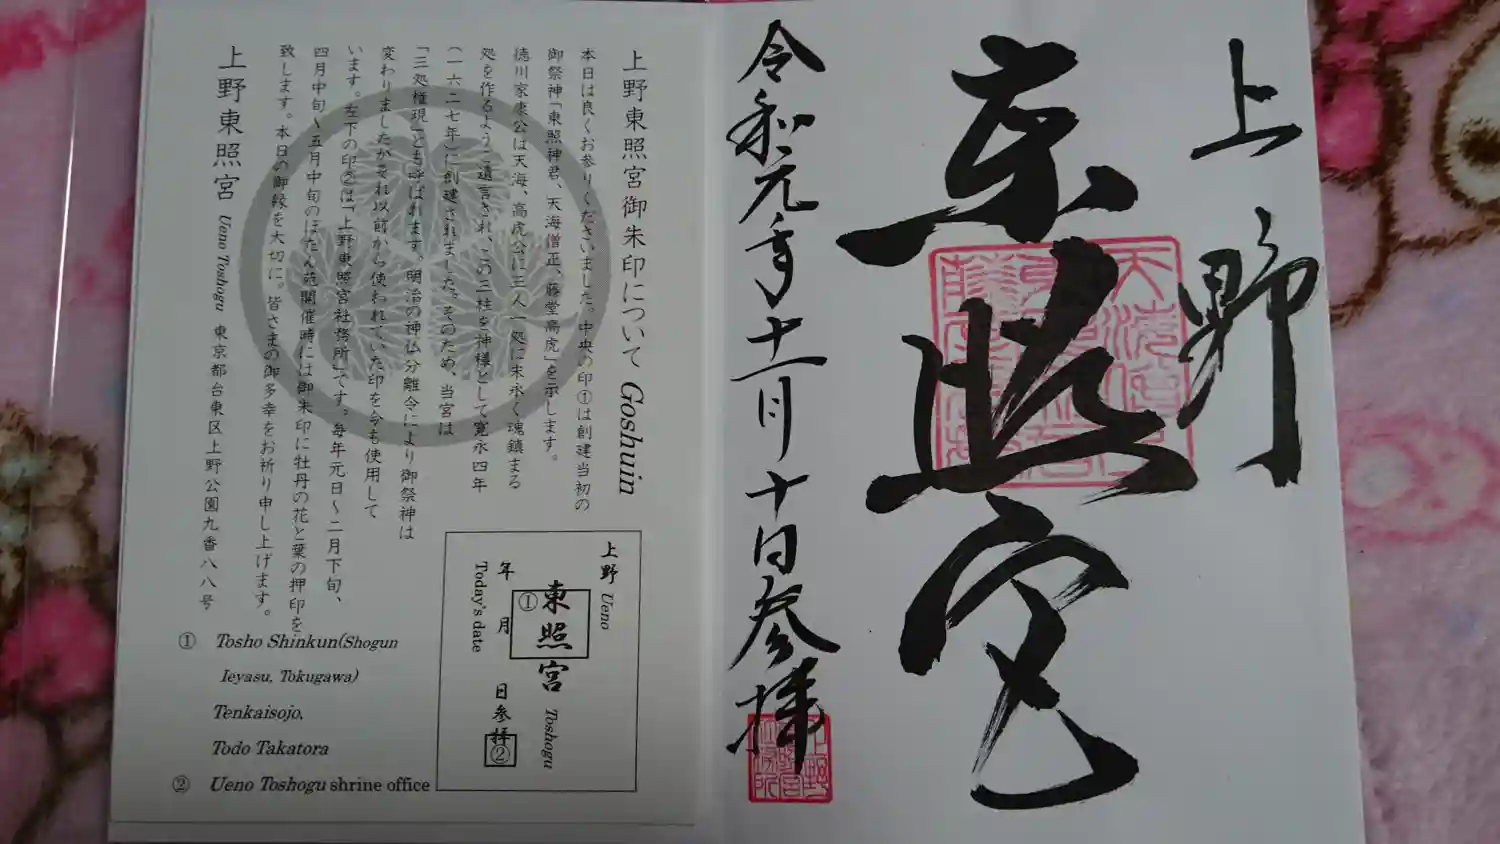 上野
東照宮
令和元年十一月十日参拝
上野東照宮御朱印について Goshuin
本日は良くお参りくださいました。中央の印①は創建当初の
御祭神「東照神君、天海僧正、藤堂高虎」を示します。
徳川家康公は天海、高虎公に三人一処に末永く魂鎮まる
処を作るように遺言され、この三柱を神様として寛永四年
(一六二七年)に創建されました。そのため、当宮は
「三処権現」とも呼ばれます。明治の神仏分離令により御祭神は
変わりましたがそれ以前から使われていた印を今も使用して
います。左下の印②は「上野東照宮社務所」です。毎年元日〜二月下旬、
四月中旬〜五月中旬のぼたん苑開催時には御朱印に牡丹の花と葉の押印を
致します。本日の御縁を大切に。皆さまの御多幸をお祈り申し上げます。
上野東照宮 Ueno Toshogu 東京都台東区上野公園九番八八号
上野 Ueno
東照宮 Toshogu
①
年 月 日参拝
②
Today's date
① Tosho Shinkun(Shogun
Ieyasu, Tokugawa)
Tenkaisojo,
Todo Takatora
② Ueno Toshogu shrine office